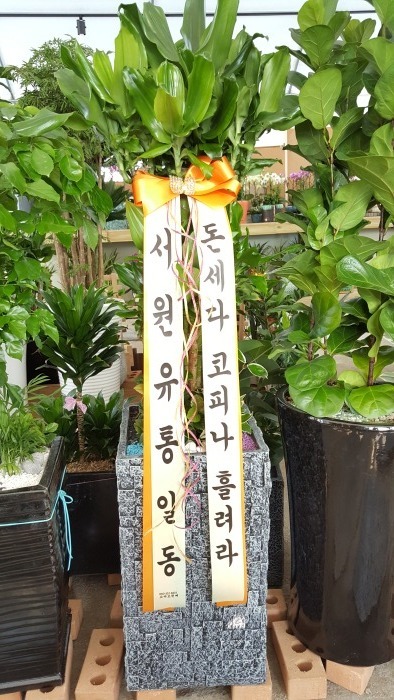 돈세다 코피나 흘려라
서원유통일동